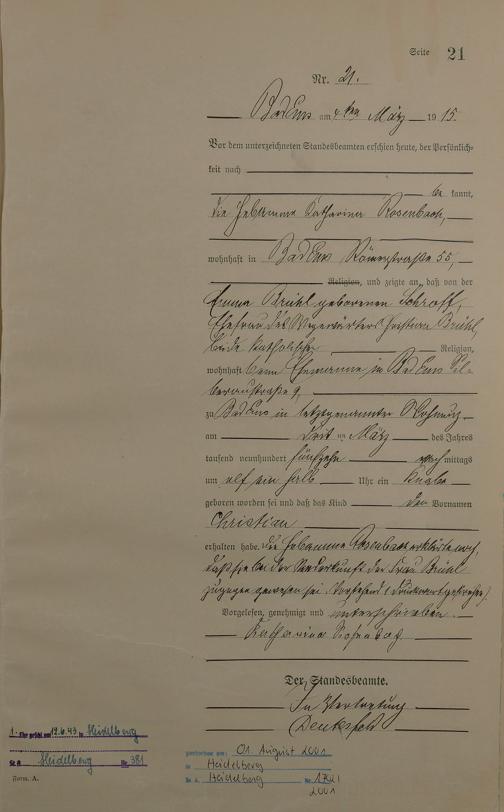 Seite 21
Nr. 21.
Bad Ems am 4 ten März 1915.
Vor dem unterzeichneten Standesbeamten erschien heute, der Persönlich-
keit nach
be kannt,
die Hebamme Katharina Rosenbach,
wohnhaft in Bad Ems Römerstraße 55,
Religion, und zeigte an, daß von der
Emma Brühl geborenen Schroff,
Ehefrau des Wegewärters Christian Brühl
beide katholischer Religion,
wohnhaft beim Ehemanne in Bad Ems Sil-
beraustraße 9,
zu Bad Ems in letztgenannter Wohnung
am drit en März des Jahres
tausend neunhundert fünfzehn nachmittags
um elf ein halb Uhr ein Knabe
geboren worden sei und daß das Kind den Vornamen
Christian
erhalten habe. Die Hebamme Rosenbach erklärte noch,
daß sie bei der Niederkunft der Frau Brühl
zugegen gewesen sei. Vorstehend 1 Druckwort gestrichen.
Vorgelesen, genehmigt und unterschrieben.
Katharina Rosenbach
Der Standesbeamte.
In Vertretung
1. Ehe geschl. am 12.6.43 in Heidelberg
St. A. Heidelberg Nr. 381
Form. A.
gestorben am 01. August 2001
in Heidelberg
St. A. Heidelberg Nr.
2001